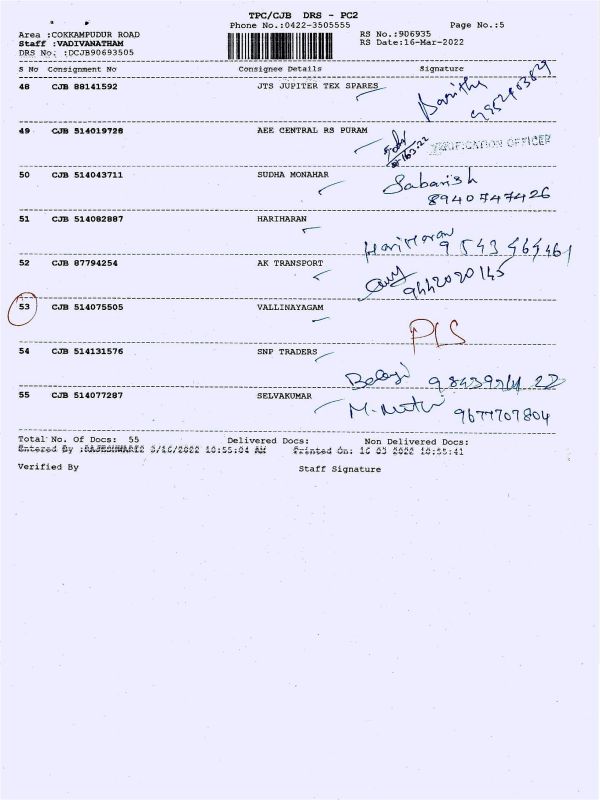 TPC/CJB DRS - PC2
Phone No.:0422-3505555 Page No.:5
Area :COKKAMPUDUR ROAD RS No.:906935
Staff :VADIVANATHAM RS Date:16-Mar-2022
DRS No. :DCJB90693505
S No Consignment No Consignee Details Signature
48 CJB 88141592 JTS JUPITER TEX SPARES
49 CJB 514019728 AEE CENTRAL RS PURAM
VERIFICATION OFFICER
50 CJB 514043711 SUDHA MONAHAR Sabarish
8940747426
51 CJB 514082887 HARIHARAN
HariHaran 9543464461
52 CJB 87794254 AK TRANSPORT
9442020145
53 CJB 514075505 VALLINAYAGAM
PLS
54 CJB 514131576 SNP TRADERS
Balaji
55 CJB 514077287 SELVAKUMAR
M. Muthu 9677707804
Total No. Of Docs: 55 Delivered Docs: Non Delivered Docs:
Entered By :RAJESHWARI2 3/16/2022 10:55:04 AM Printed On: 16 03 2022 10:55:41
Verified By Staff Signature